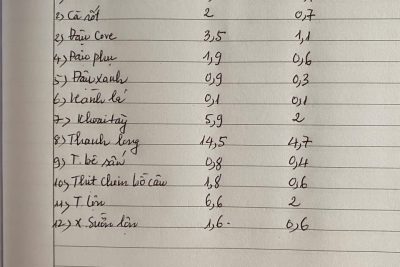 2) Cà rốt 2 0,7
3) Đậu Cove 3,5 1,1
4) Đậu phụ 1,9 0,6
5) Đậu xanh 0,9 0,3
6) Hành lá 0,1 0,1
7) Khoai tây 5,9 2
8) Thanh long 14,5 4,7
9) T. bê sấn 0,8 0,4
10) Thịt chim bồ câu 1,8 0,6
11) T lợn 6,6 2
12) X Sườn lợn 1,6 0,6